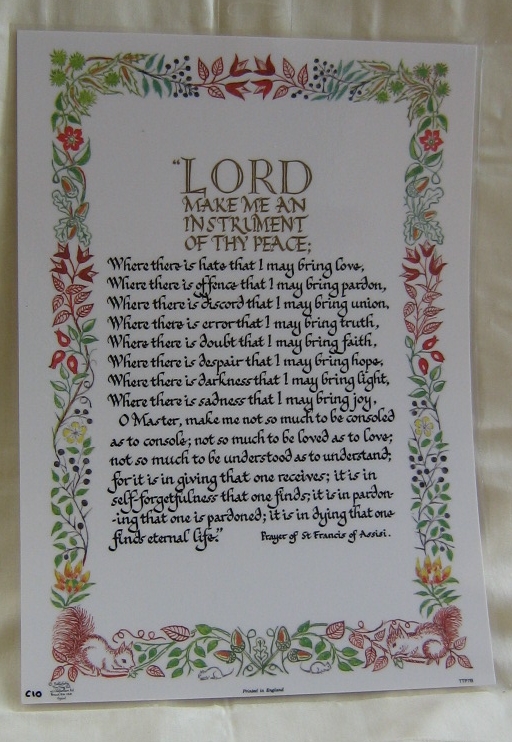 “LORD
MAKE ME AN
INSTRUMENT
OF THY PEACE;
Where there is hate that I may bring love,
Where there is offence that I may bring pardon,
Where there is discord that I may bring union,
Where there is error that I may bring truth,
Where there is doubt that I may bring faith,
Where there is despair that I may bring hope,
Where there is darkness that I may bring light,
Where there is sadness that I may bring joy,
O Master, make me not so much to be consoled
as to console; not so much to be loved as to love;
not so much to be understood as to understand;
for it is in giving that one receives; it is in
self-forgetfulness that one finds; it is in pardon-
-ing that one is pardoned; it is in dying that one
finds eternal life.” Prayer of St Francis of Assisi.
C10
Printed in England